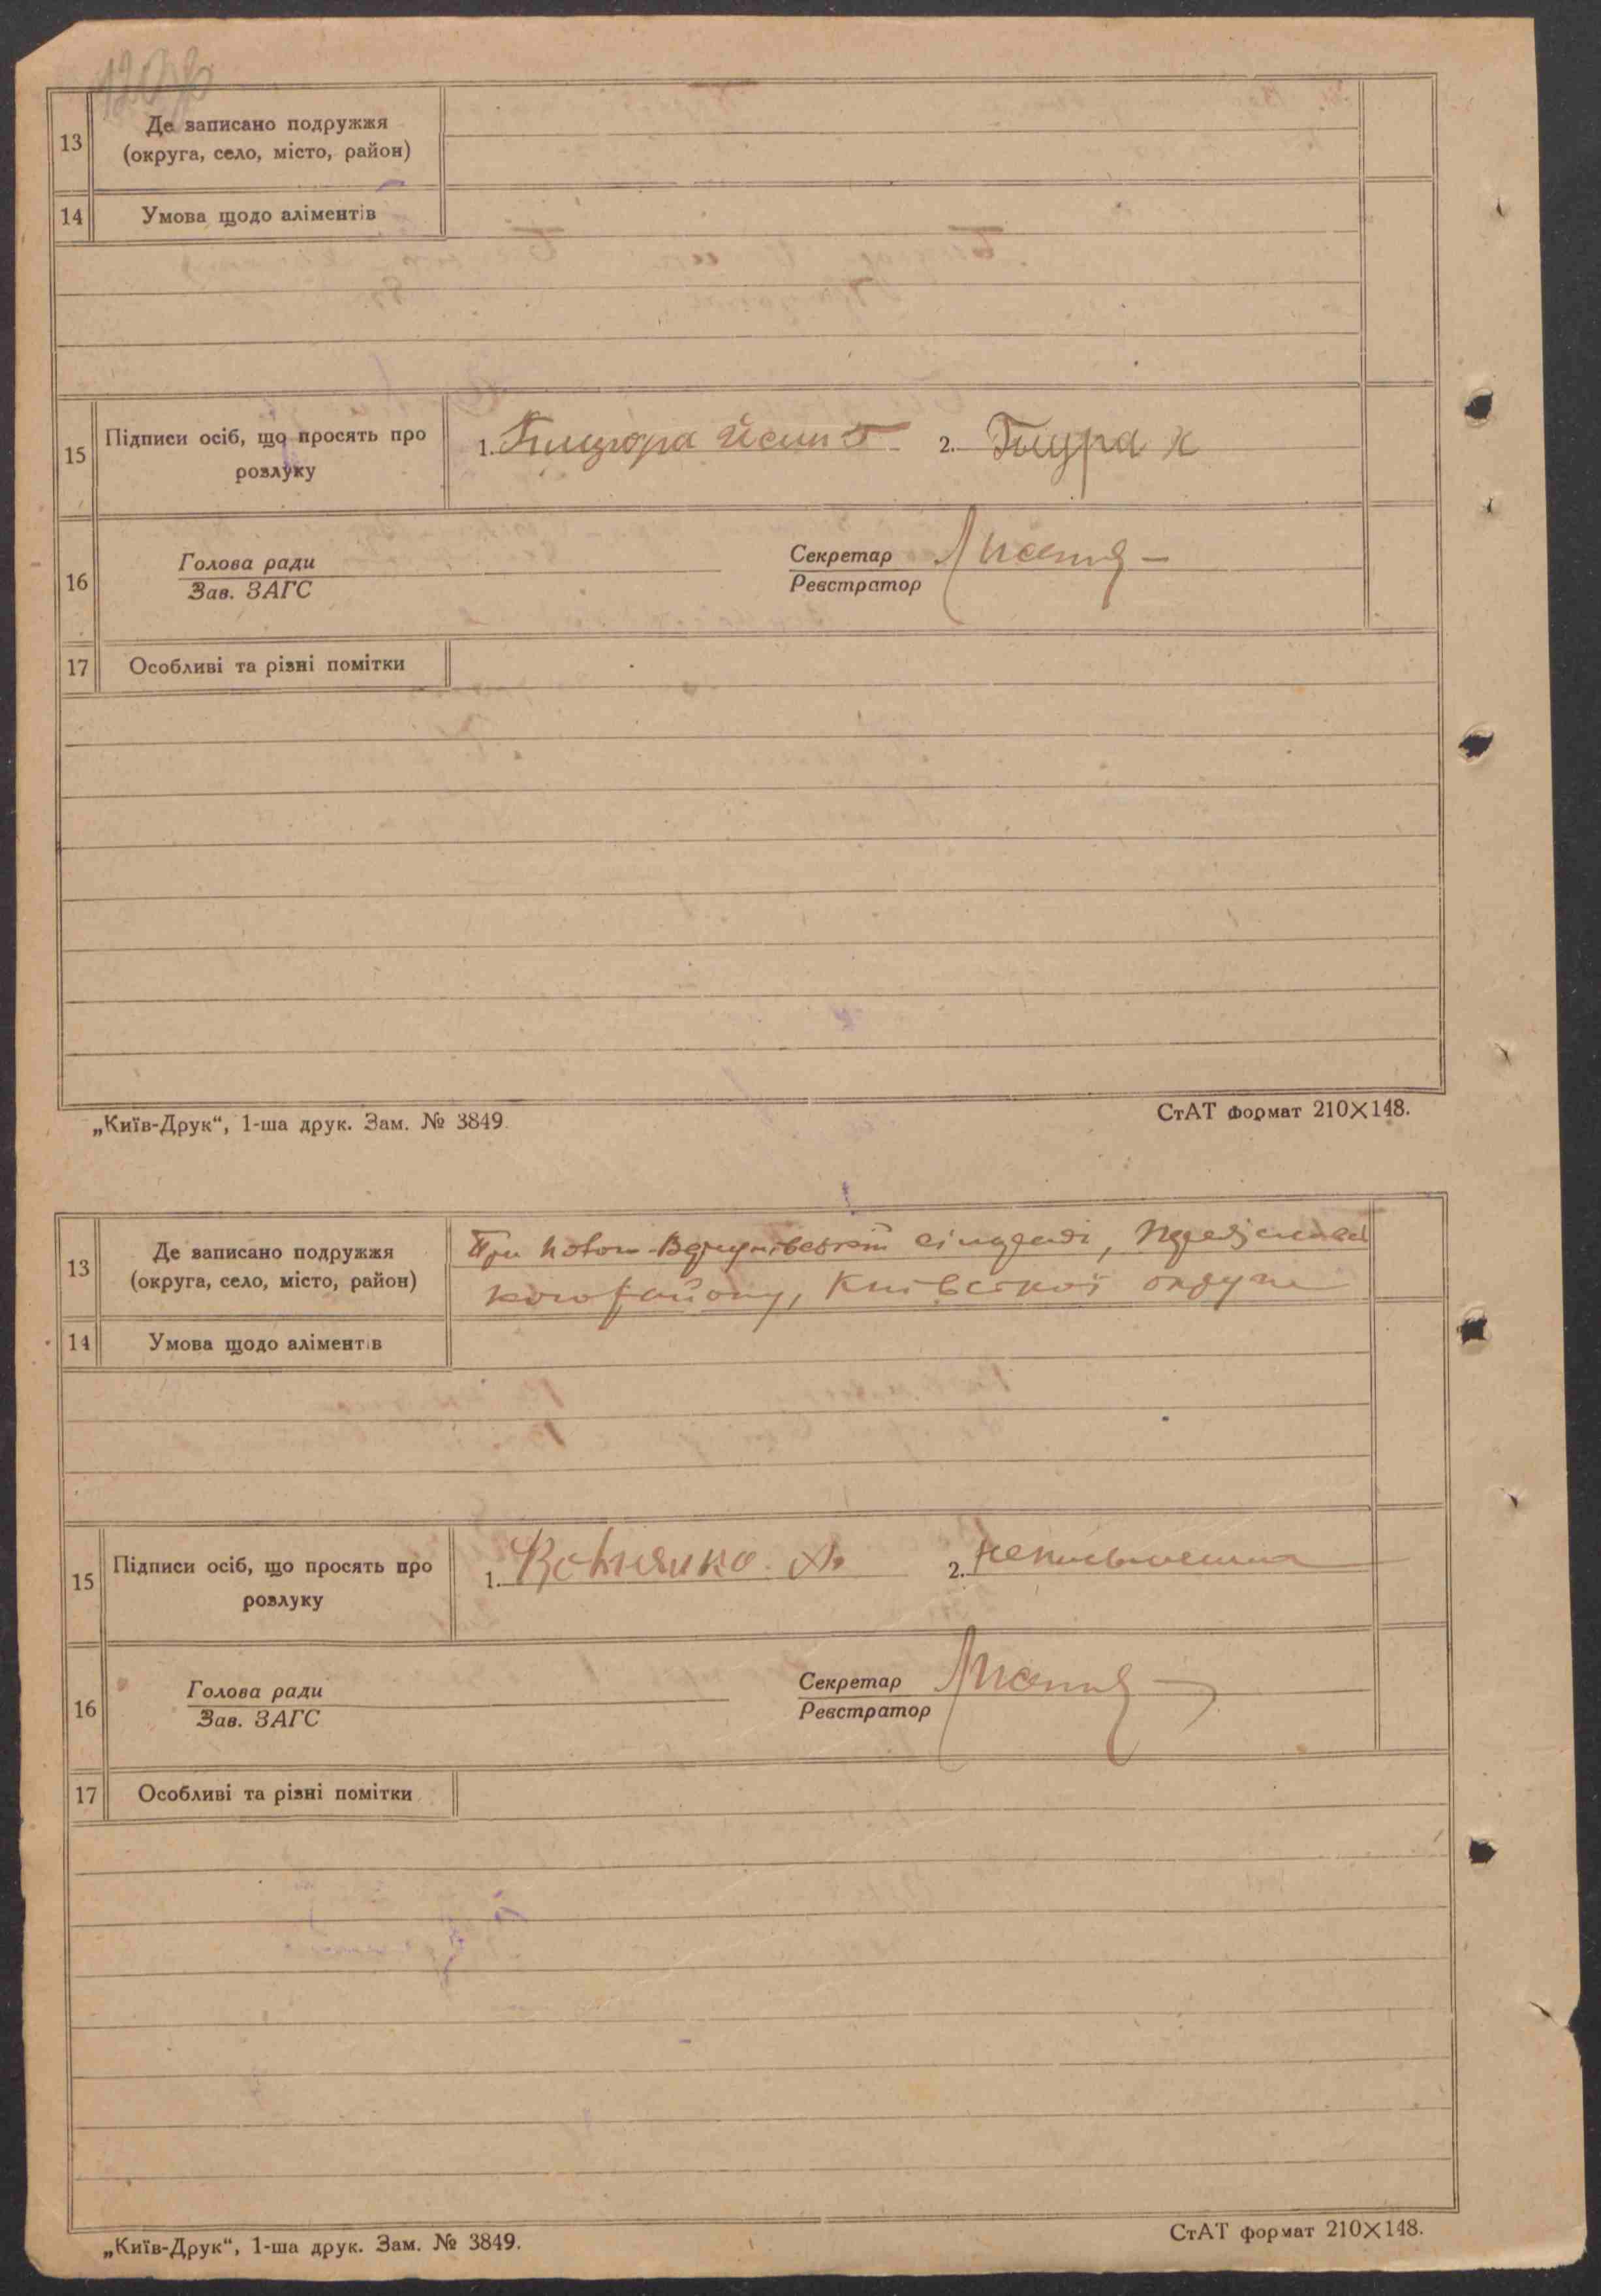 13
Де записано подружжя
(округа, село, місто, район)
14
Умова щодо аліментів
15
Підписи осіб, що просять про
розлуку
1.
2.
16
Голова ради
Зав. ЗАГС
Секретар
Реєстратор
17
Особливі та різні помітки
„Київ-Друк“, 1-ша друк. Зам. № 3849.
СтАТ формат 210×148.
13
Де записано подружжя
(округа, село, місто, район)
При сільраді,
району, Київської округи
14
Умова щодо аліментів
15
Підписи осіб, що просять про
розлуку
1.
2. неписьменна
16
Голова ради
Зав. ЗАГС
Секретар
Реєстратор
17
Особливі та різні помітки
„Київ-Друк“, 1-ша друк. Зам. № 3849.
СтАТ формат 210×148.